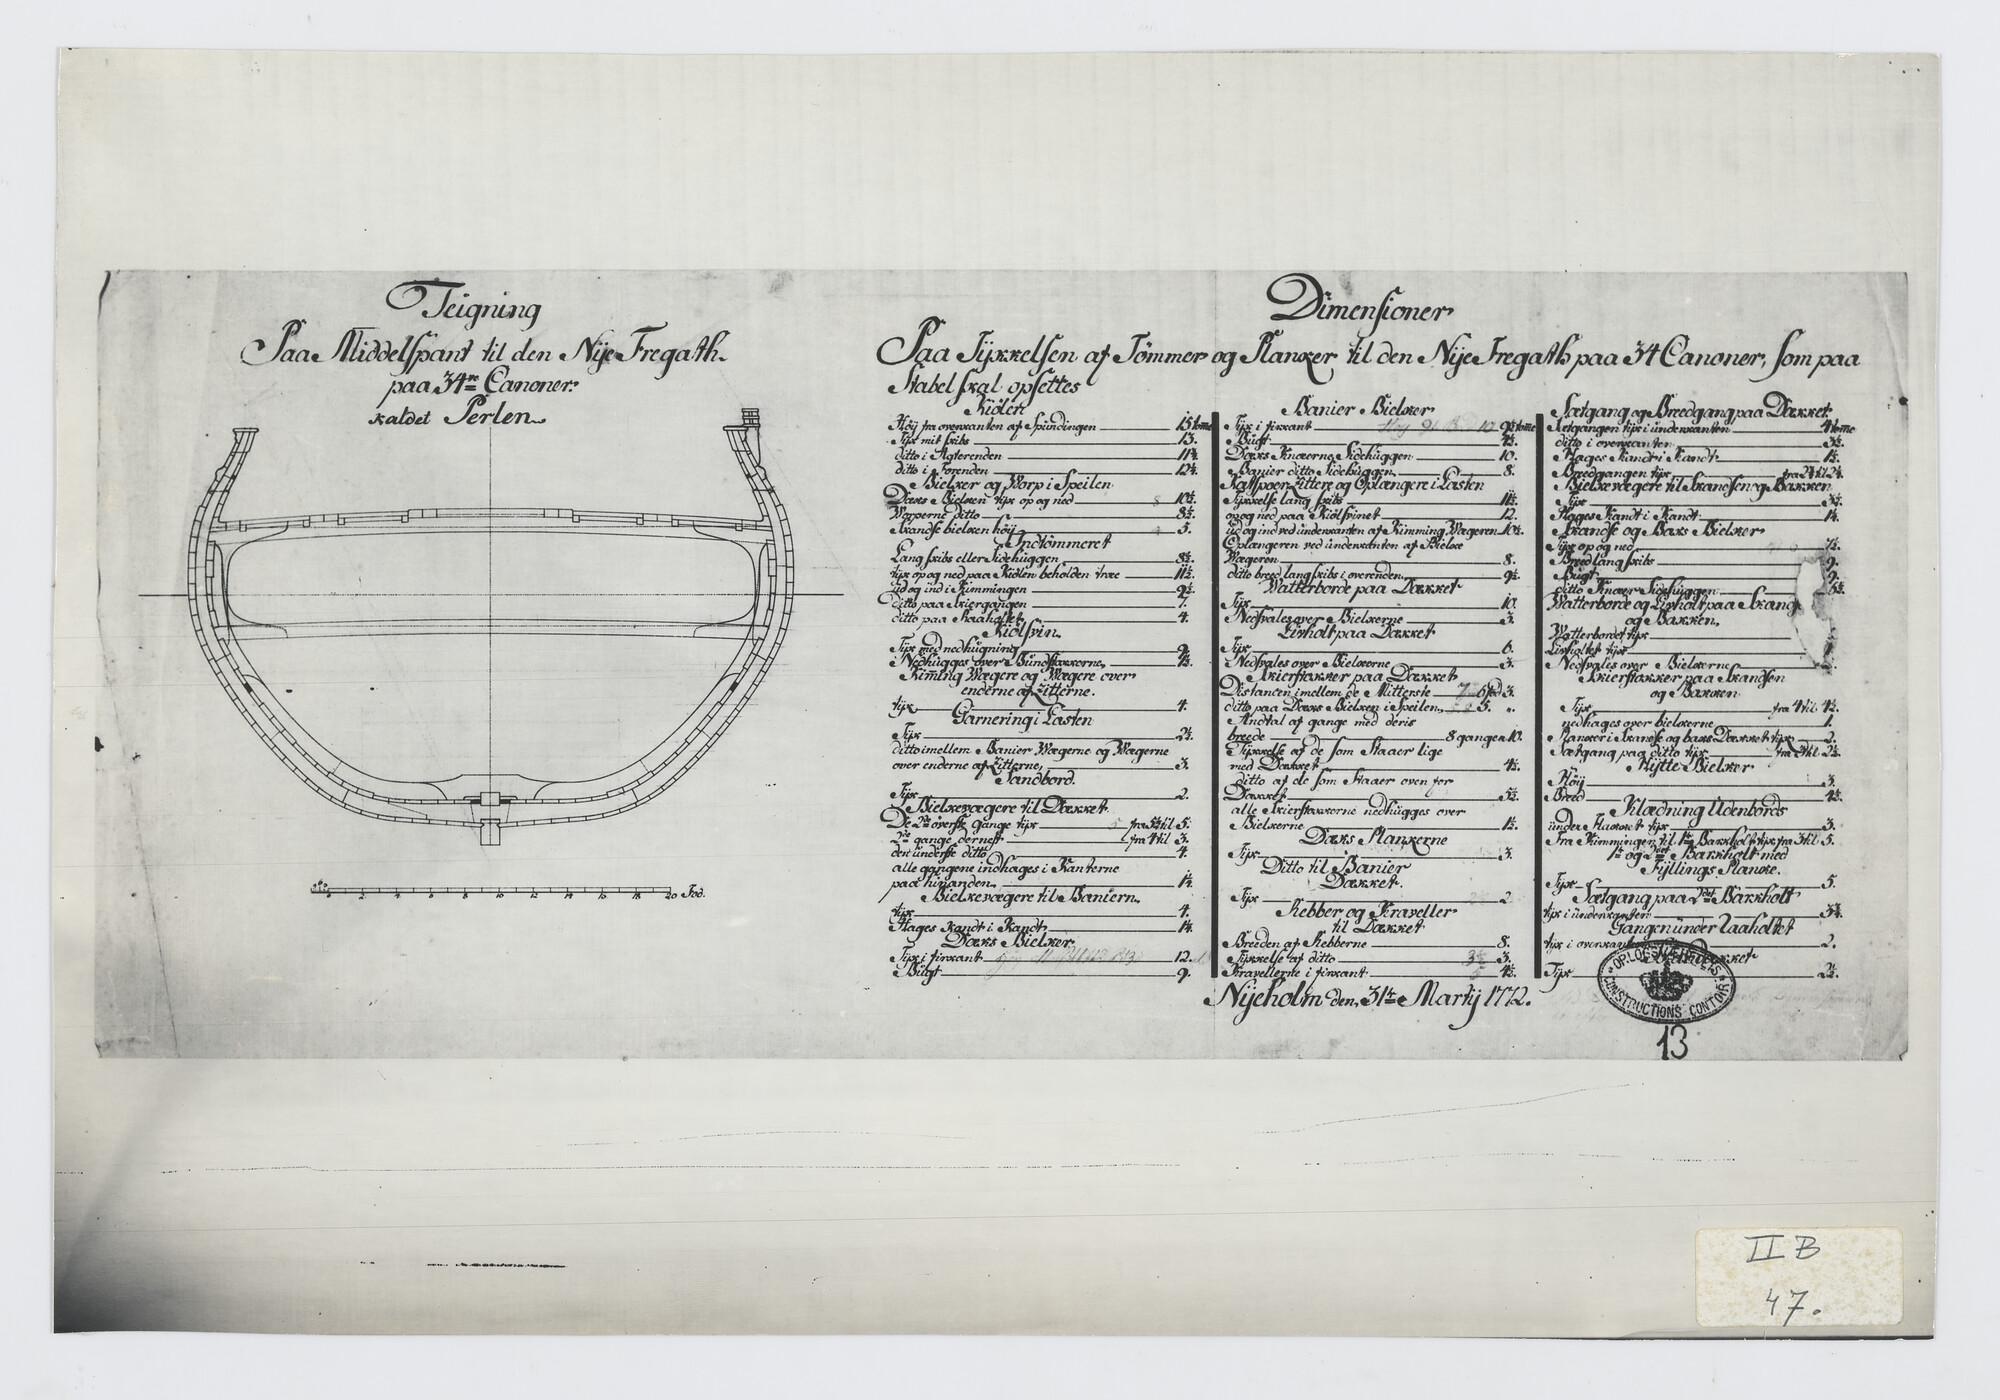 Teigning
Paa Middelspant til den Nÿe Fregath
paa 34re Canoner.
kaldet Perlen
0 2 4 6 8 10 12 14 16 18 20 Fod.
Dimensioner
Paa Tÿkkelsen af Tømmer og Planker til den Nÿe Fregath paa 34 Canoner, som paa
Stabel skal opsettes
Kiølen
Høÿ fra overkanten af Spündingen 15 tome
Tÿk mit skibs 13.
ditto i Agterenden 11½
ditto i Forenden 12½
Bielker og Worp i Speilen
Daks Bielken tÿk op og ned 10½
Worperne ditto 8½
Skandse bielken høÿ 5.
Indtømmeret
Lang skibs eller Sidehüggen 8½
tÿk op og ned paa Kiølen beholden træ 11½
üd og ind i Kimmingen 9½
ditto paa Skiergangen 7.
ditto paa Raaholtet 4.
Kiølsvin
Tÿk med nedhügning
Nedhügges over Bündstokkerne
Kiming Wægere og Wægere over
enderne af Zitterne.
tÿk 4.
Garnering i Lasten
Tÿk 2½
ditto imellem Banier Wægerne og Wægerne
over enderne af Zitterne 3.
Sandbord.
Tÿk 2.
Bielkevægere til Dækket
De 2de øverste gange tÿk fra 5½ til 5.
2de gange dernest fra 4 til 3.
den ünderste ditto 4.
alle gangene indhages i Kanterne
paa hinanden 1¼
Bielkevægere til Baniern
tÿk 4.
Hages Kandt i Kandt 1¼
Daks Bielker
Tÿk i firkant 12.
Bügt 9.
Banier Bielker
Tÿk i firkant 9½ tome
Bügt 4½
Daks Knæerne Sidehüggen 10.
Banier ditto Sidehüggen 8.
Katspoer Zittere og Oplængere i Lasten
Tÿkkelse lang skibs 11½
op og ned paa Kiølsvinet 12.
üd og ind ved ünderkanten af Kimming Wægeren 10½
Oplængeren ved ünderkanten af Bielke
Wægeren 8.
ditto breed langskibs i overenden 9½
Watterborde paa Dækket
Tÿk 10.
Nedsvales over Bielkerne 3.
Livholt paa Dækket
Tÿk 6.
Nedsvales over Bielkerne 3.
Skierstokker paa Dækket
Distancen imellem de Mitterste 6 fod 3.
ditto paa Daks Bielken i Speilen 5. "
Andtal af gange med deris
breede 8 gange a 10.
Tÿkkelse af de som Staaer lige
med Dækket 4½
ditto af de som Staaer oven for
Dækket 5½
alle Skierstokkerne nedhügges over
Bielkerne 1½
Daks Plankerne
Tÿk 3.
Ditto til Banier
Dækket.
Tÿk 2
Ribber og Kraveller
til Dækket
Breeden af Ribberne 8.
Tÿkkelse af ditto 3.
Kravellerne i firkant 4½
Sætgang og Breedgang paa Dækket
Sætgangen tÿk i ünderkanten 4 tome
ditto i overkanten 3½
Hages Kandt i Kandt 1½
Breedgangen tÿk
Bielkevægere til Skandsen og Bakken
Tÿk 3½
Hages Kandt i Kandt 1¼
Skandse og Baks Bielker
Tÿk op og ned 7½
Breed lang skibs 9.
Bügt 9.
ditto Knæer Sidehüggen
Watterborde og Livholt paa Skands
og Bakken.
Watterbordet tÿk
Livholtet tÿk
Nedsvales over Bielkerne
Skierstokker paa Skandsen
og Bakken
Tÿk fra 4 til 4½
nedhages over bielkerne 1.
Planker i Skandse og baks Dækket tÿk 2.
Sætgang paa ditto tÿk fra 3 til 2½
Hÿtte Bielker
Høÿ 3.
Breed 4½
Klædning Udenbords
ünder Flakket tÿk 3.
Fra Kimmingen til 1te Barkholt tÿk fra 3 til 5.
1te og 2det Barkholt med
Fÿllings Planke.
Tÿk 5.
Sætgang paa 2det Barkholt
tÿk i ünderkanten 3½
Gangen ünder Raaholtet
tÿk i overkanten 2.
Tÿk 2½
Nÿeholm den 31te Martÿ 1772.
OPLOGS
CONSTRUCTIONS CONTOIR
13
II B
47.